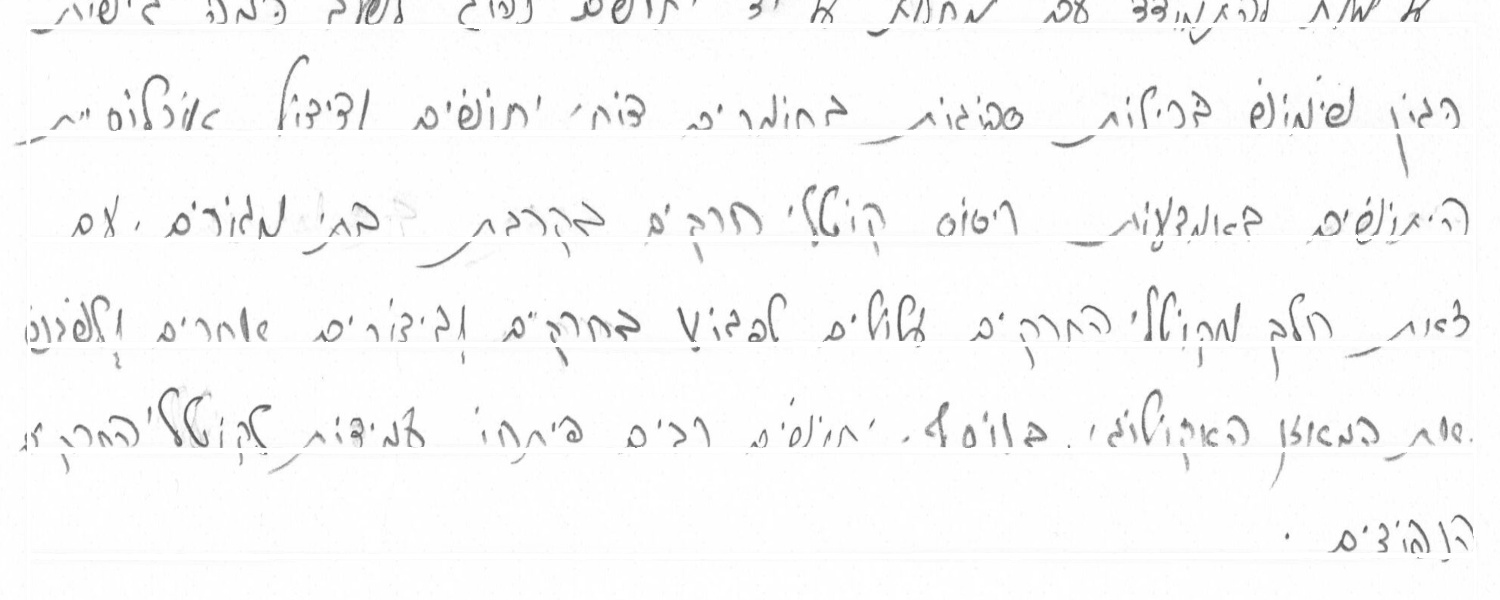 על מנת להתמודד עם מחלות על יד יתושים נהוג לשלב כמה גישות
כגון שימוש בכילות ספוגות בחומרים דוחי יתושים ודידול אוכלוסיית
היתושים באמצעות ריסוס קוטלי חרקים בקרבת בתי מגורים, עם
זאת חלק מקוטלי החרקים עלולים לפגוע בחרקים וביצורים אחרים ולשבש
את המאזן האקולוגי. בנוסף, יתושים רבים פיתחו עמידות לקוטלי החרקים
הנפוצים.